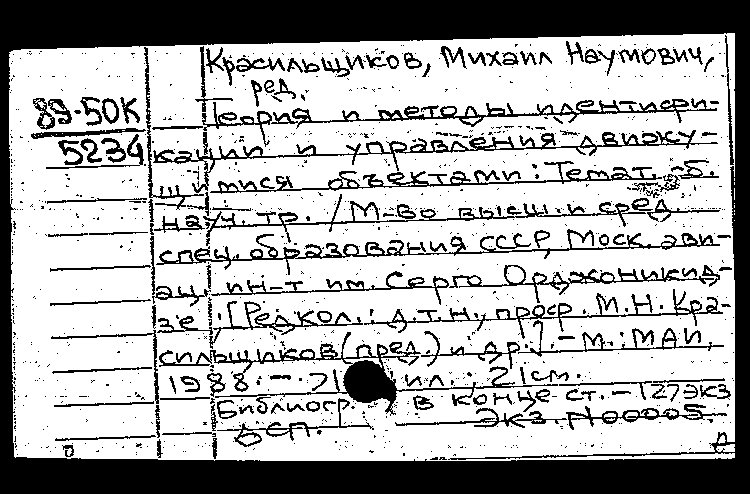 Красильщиков, Михаил Наумович,
ред.
89-50К
5234
Теория и методы идентифи-
кации и управления движу-
щимися объектами: Темат. сб.
науч. тр. / М-во высш. и сред.
спец. образования СССР, Моск. ави-
ац. ин-т им. Серго Орджоникид-
зе ; [Редкол.: д.т.н., проф. М.Н. Кра-
сильщиков (пред.) и др.]. - М.: МАИ,
1988. - 71 ил. ; 21см.
Библиогр. в конце ст. - 127экз
ВСП. Экз. №00005.